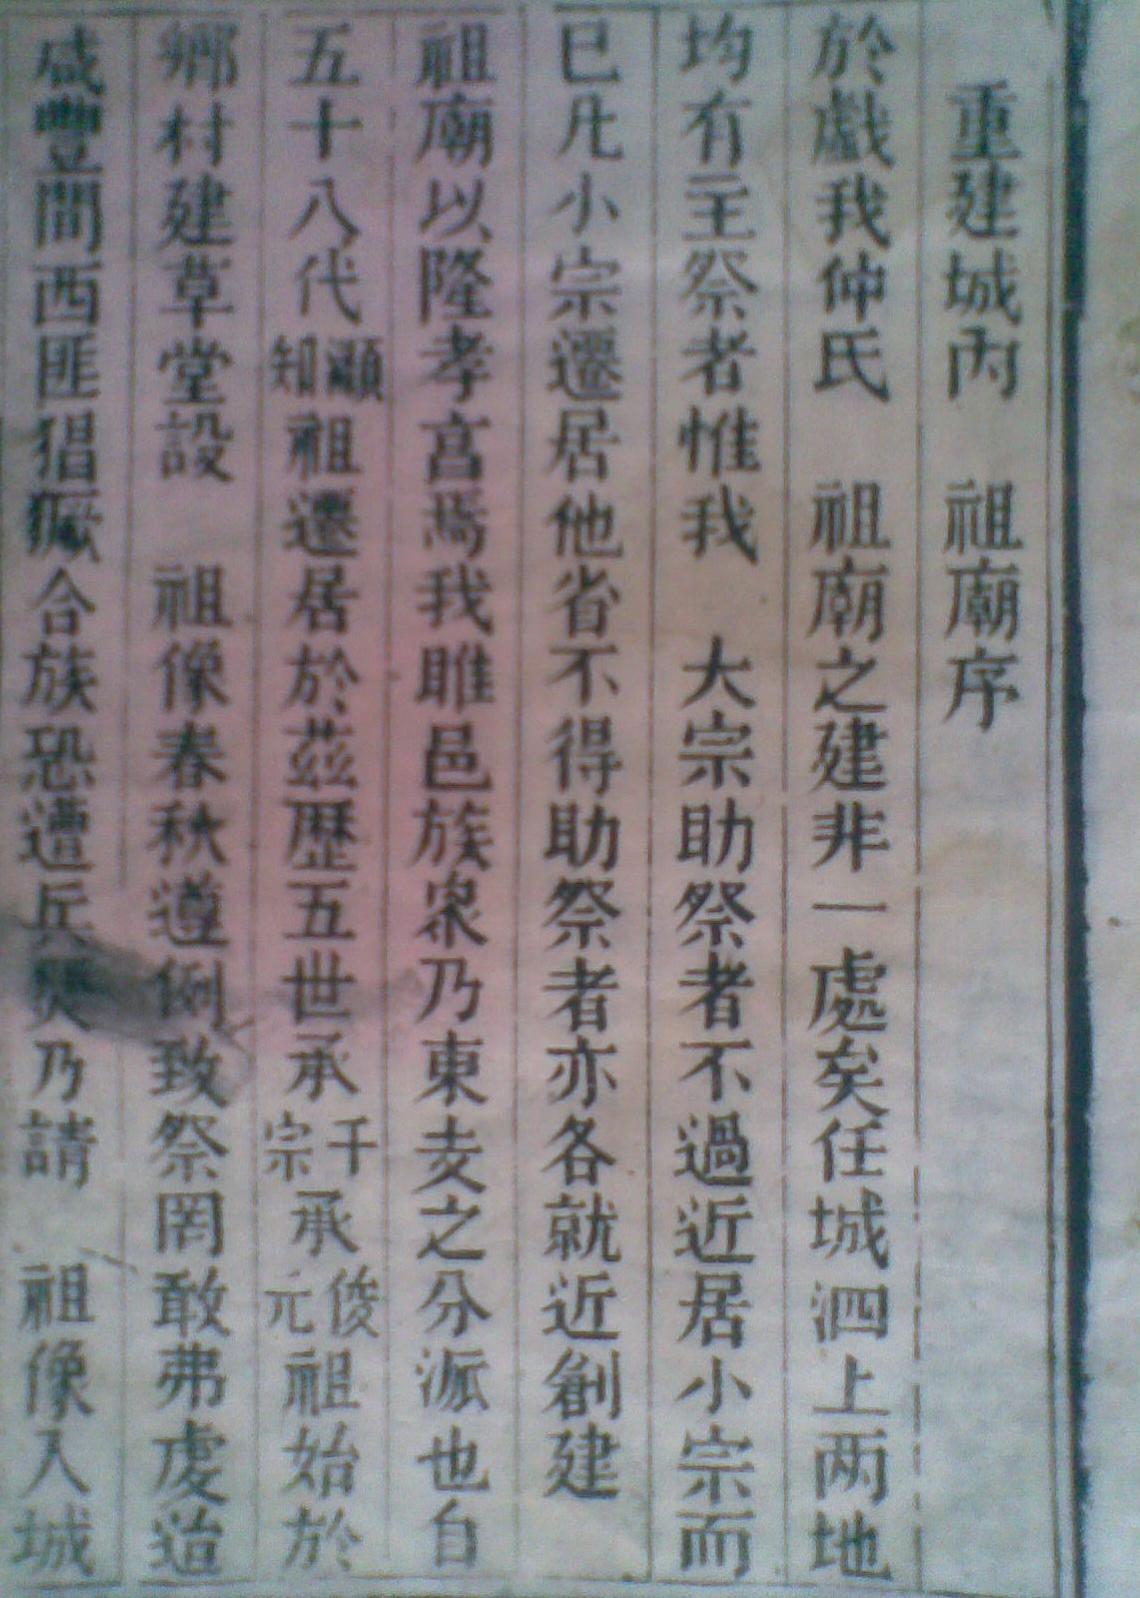 重建城內　祖廟序
於戲我仲氏　祖廟之建非一處矣任城泗上两地
均有主祭者惟我　大宗助祭者不過近居小宗而
已凡小宗遷居他省不得助祭者亦各就近創建
祖廟以隆孝亯焉我睢邑族衆乃東支之分派也自
五十八代灝知祖遷居於茲歷五世承千宗承俊元祖始於
鄉村建草堂設　祖像春秋遵例致祭罔敢弗虔迨
咸豐間西匪猖獗合族恐遭兵燹乃請　祖像入城